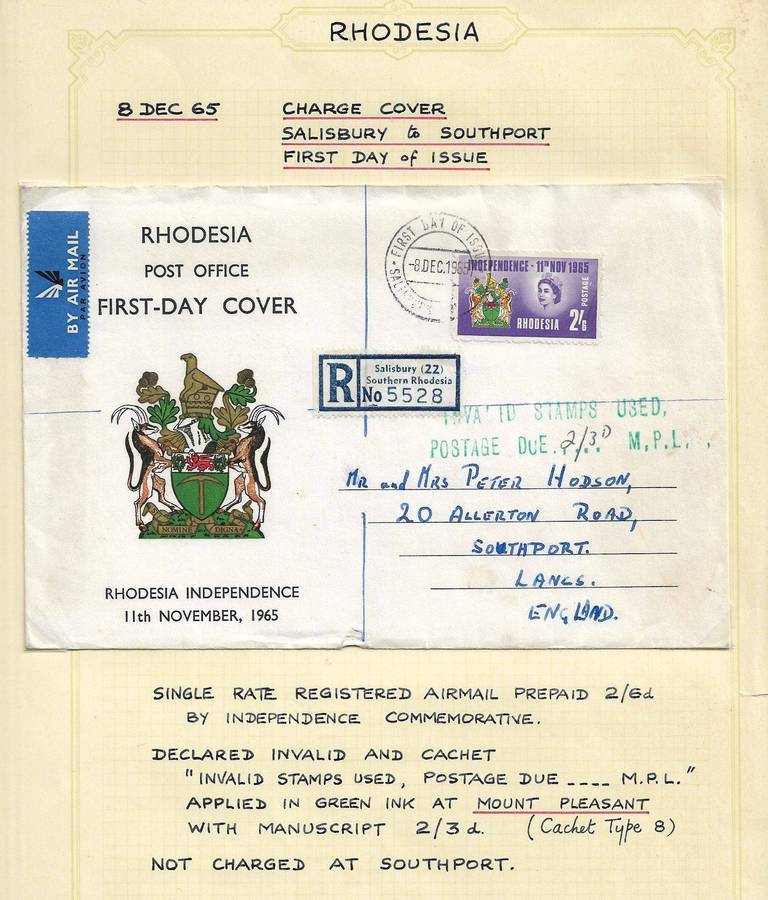 RHODESIA
8 DEC 65 CHARGE COVER
SALISBURY to SOUTHPORT
FIRST DAY of ISSUE
BY AIR MAIL
PAR AVION
RHODESIA
POST OFFICE
FIRST-DAY COVER
FIRST DAY OF ISSU
-8 DEC.1965
SALISBURY
INDEPENDENCE - 11TH NOV 1965
POSTAGE
RHODESIA 2/6
R
Salisbury (22)
Southern Rhodesia
No 5528
INVALID STAMPS USED,
POSTAGE DUE. 2/3D M.P.L.
Mr and Mrs PETER HODSON,
20 ALLERTON ROAD,
SOUTHPORT.
LANCS.
ENGLAND.
NOMINE DIGNA
RHODESIA INDEPENDENCE
11th NOVEMBER, 1965
SINGLE RATE REGISTERED AIRMAIL PREPAID 2/6d
BY INDEPENDENCE COMMEMORATIVE.
DECLARED INVALID AND CACHET
"INVALID STAMPS USED, POSTAGE DUE ---- M.P.L."
APPLIED IN GREEN INK AT MOUNT PLEASANT
WITH MANUSCRIPT 2/3 d. (Cachet Type 8)
NOT CHARGED AT SOUTHPORT.